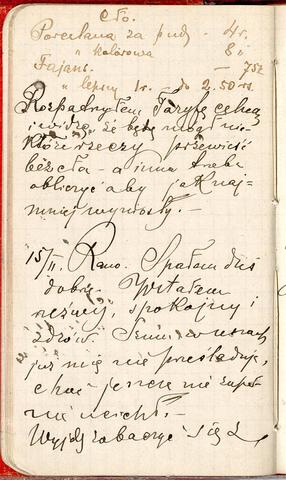 Cło.
Porcelana za pudy - 4r.
" kolorowa 8r.
Fajans. - 75k
" lepszy 1r. - do 2.50 rs.
Rozpatrzyłem Taryfę celną
i widzę, że będę mógł nie-
które rzeczy przewieść
bez cła - a inne trzeba
obliczyć aby jak naj-
mniej wyniosły. -
15/II. Rano. Spałem dziś
dobrze. Wstałem
rzeźwy, spokojny i
zdrów. Szum w uszach
już mię nie prześladuje,
choć jeszcze nie zupeł
nie ucichł. -
Wyjdę zobaczyć się z